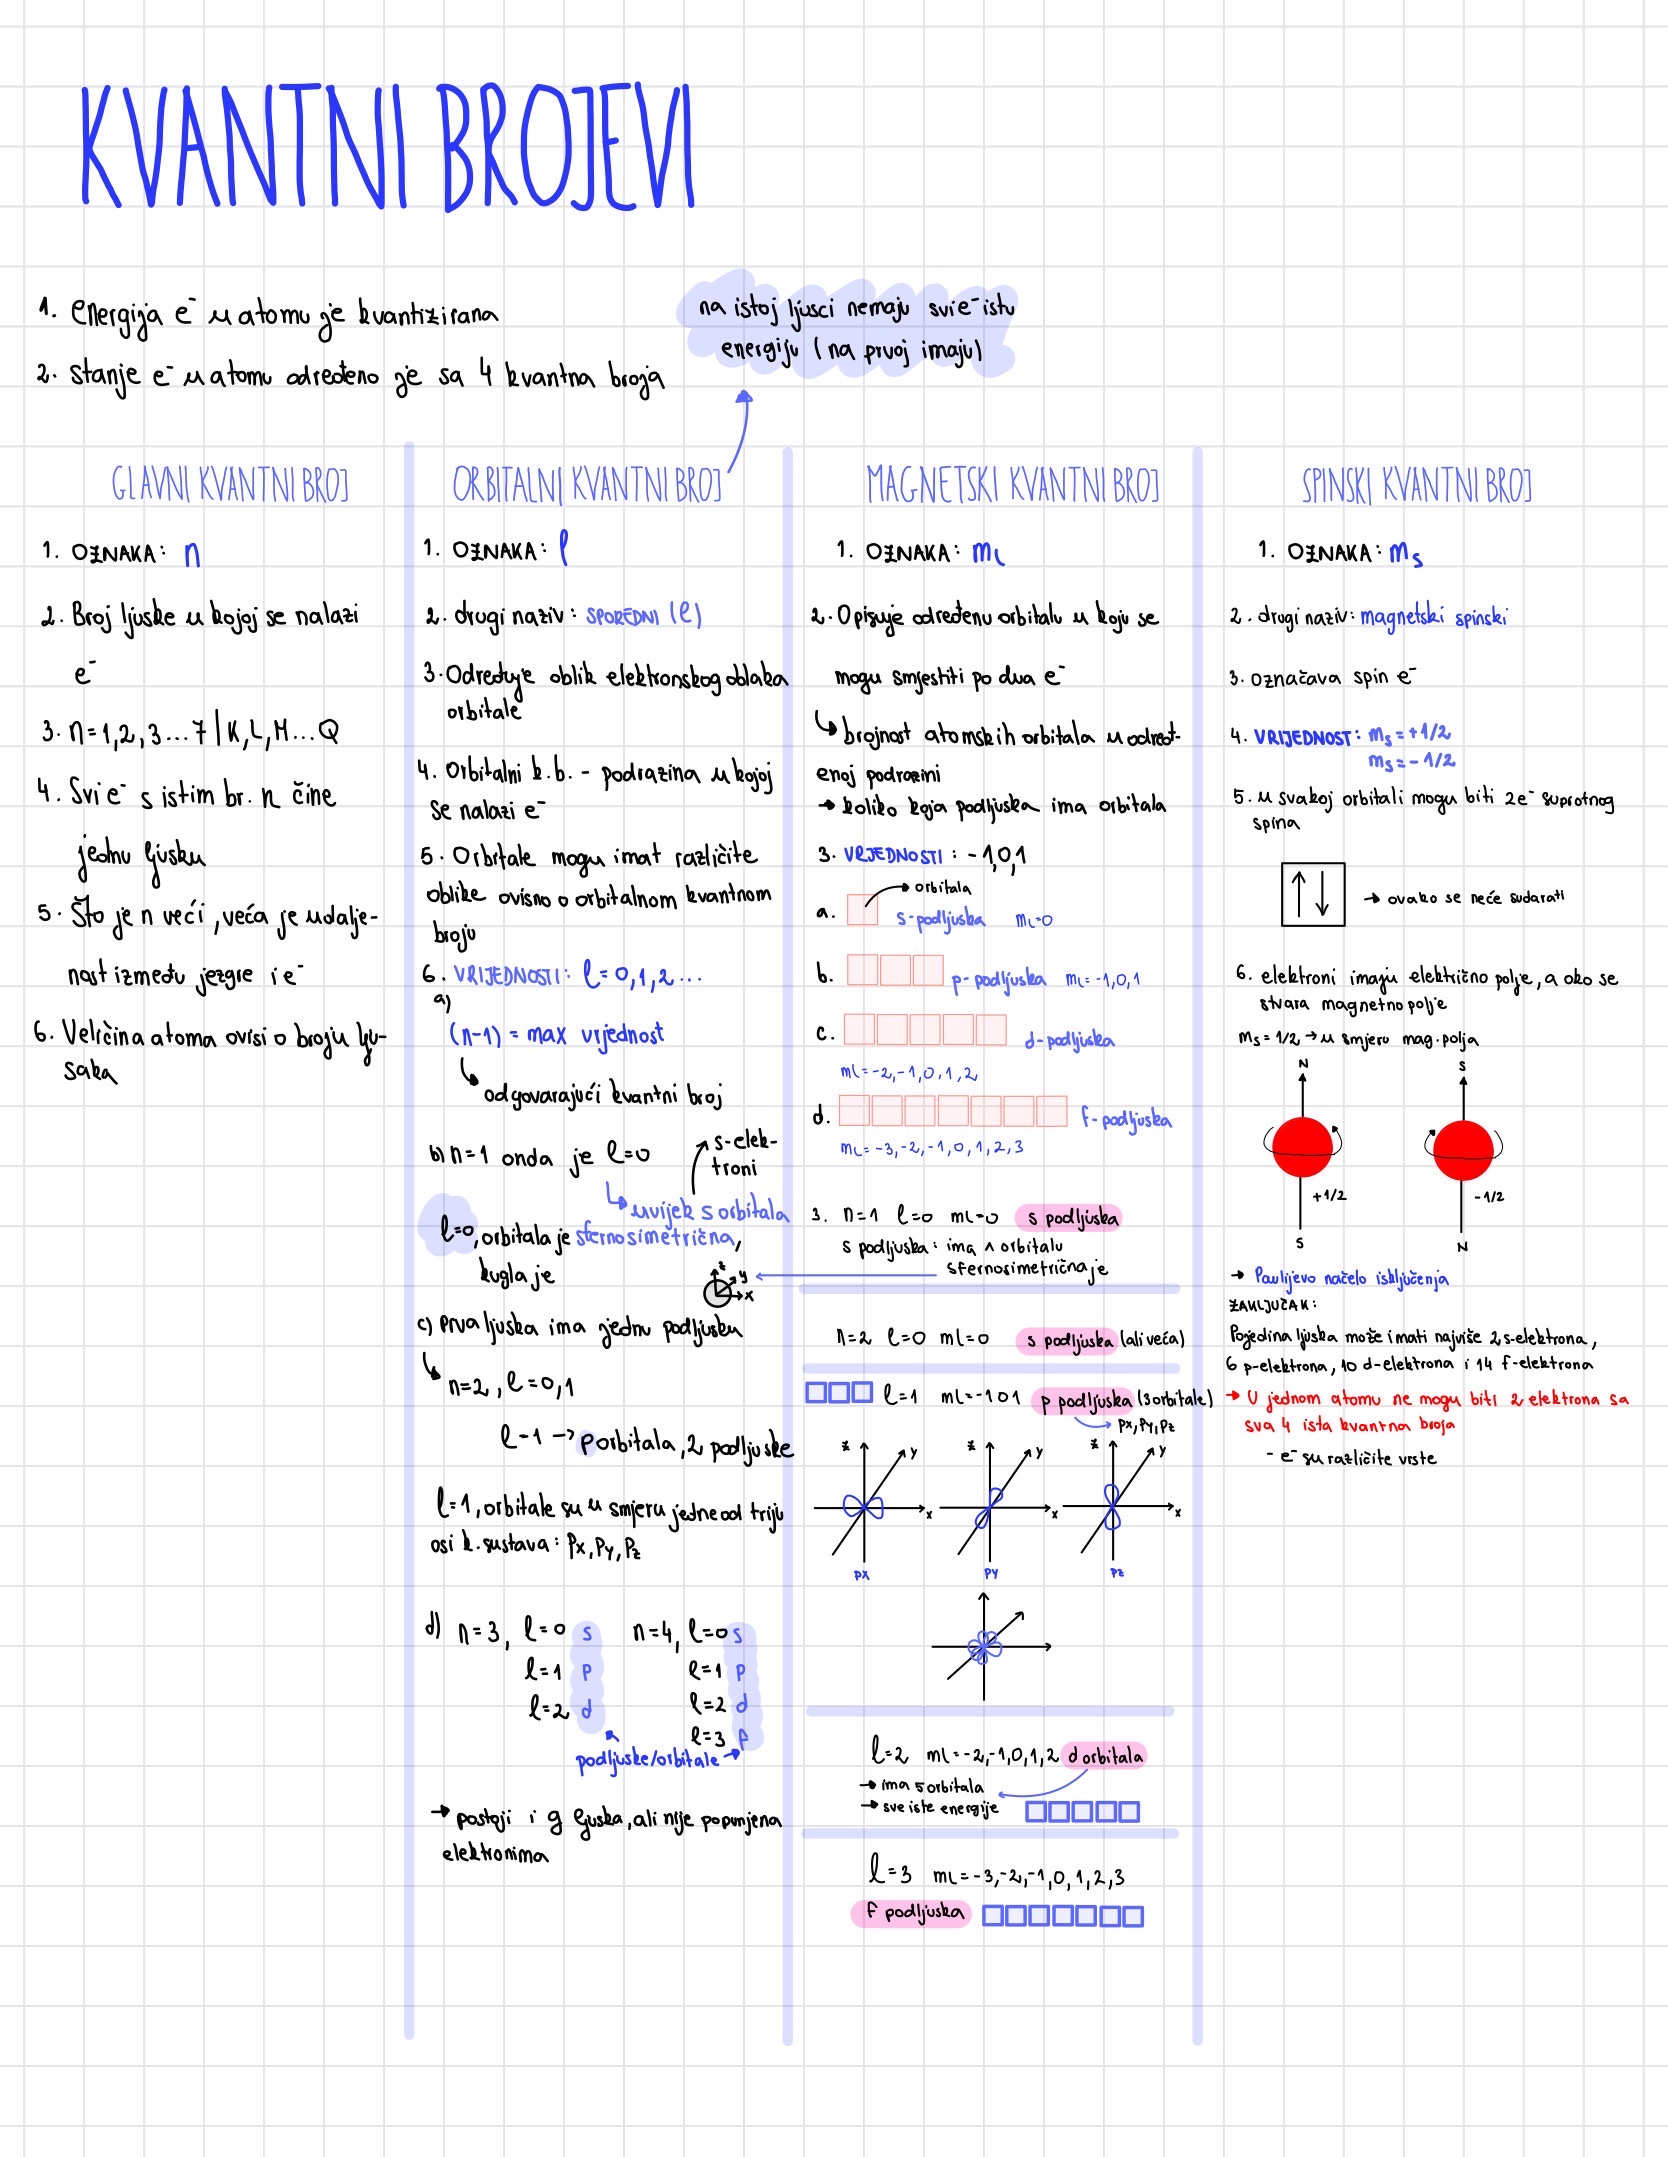 KVANTNI BROJEVI
1. energija e⁻ u atomu je kvantizirana
2. stanje e⁻ u atomu određeno je sa 4 kvantna broja
na istoj ljusci nemaju svi e⁻ istu
energiju (na prvoj imaju)
GLAVNI KVANTNI BROJ
1. OZNAKA: n
2. Broj ljuske u kojoj se nalazi
e⁻
3. n=1,2,3...7 | K,L,M...Q
4. Svi e⁻ s istim br. n čine
jednu ljusku
5. Što je n veći, veća je udalje-
nost između jezgre i e⁻
6. Veličina atoma ovisi o broju lju-
saka
ORBITALNI KVANTNI BROJ
1. OZNAKA: l
2. drugi naziv: SPOREDNI (l)
3. Određuje oblik elektronskog oblaka
orbitale
4. Orbitalni k.b. - podrazina u kojoj
se nalazi e⁻
5. Orbitale mogu imat različite
oblike ovisno o orbitalnom kvantnom
broju
6. VRIJEDNOSTI: l=0,1,2...
a)
(n-1) = max vrjednost
odgovarajući kvantni broj
b) n=1 onda je l=0
s-elek-
troni
uvijek s orbitala
l=0, orbitala je sfernosimetrična,
kugla je
z
y
x
c) prva ljuska ima jednu podljusku
n=2, l=0,1
l-1 → p orbitala, 2 podljuske
l=1, orbitale su u smjeru jedne od triju
osi k. sustava: Px, Py, Pz
d) n=3, l=0 s n=4, l=0 s
l=1 p l=1 p
l=2 d l=2 d
l=3 f
podljuske/orbitale →
→ postoji i g ljuska, ali nije popunjena
elektronima
MAGNETSKI KVANTNI BROJ
1. OZNAKA: ml
2. Opisuje određenu orbitalu u koju se
mogu smjestiti po dva e⁻
brojnost atomskih orbitala u određ-
enoj podrazini
→ koliko koja podljuska ima orbitala
3. VRJEDNOSTI: -1,0,1
orbitala
a. s-podljuska ml=0
b. p-podljuska ml=-1,0,1
c. d-podljuska
ml=-2,-1,0,1,2
d. f-podljuska
ml=-3,-2,-1,0,1,2,3
3. n=1 l=0 ml=0 s podljuska
s podljuska: ima 1 orbitalu
sfernosimetrična je
n=2 l=0 ml=0 s podljuska (ali veća)
l=1 ml=-1 0 1 p podljuska (3 orbitale)
px, py, pz
z y x z y x z y x
px py pz
l=2 ml=-2,-1,0,1,2 d orbitala
→ ima 5 orbitala
→ sve iste energije
l=3 ml=-3,-2,-1,0,1,2,3
f podljuska
SPINSKI KVANTNI BROJ
1. OZNAKA: ms
2. drugi naziv: magnetski spinski
3. označava spin e⁻
4. VRIJEDNOST: ms=+1/2
ms=-1/2
5. u svakoj orbitali mogu biti 2e⁻ suprotnog
spina
→ ovako se neće sudarati
6. elektroni imaju električno polje, a oko se
stvara magnetno polje
ms=1/2 → u smjeru mag. polja
N S
+1/2 -1/2
S N
→ Paulijevo načelo isključenja
ZAKLJUČAK:
Pojedina ljuska može imati najviše 2 s-elektrona,
6 p-elektrona, 10 d-elektrona i 14 f-elektrona
→ U jednom atomu ne mogu biti 2 elektrona sa
sva 4 ista kvantna broja
- e⁻ su različite vrste